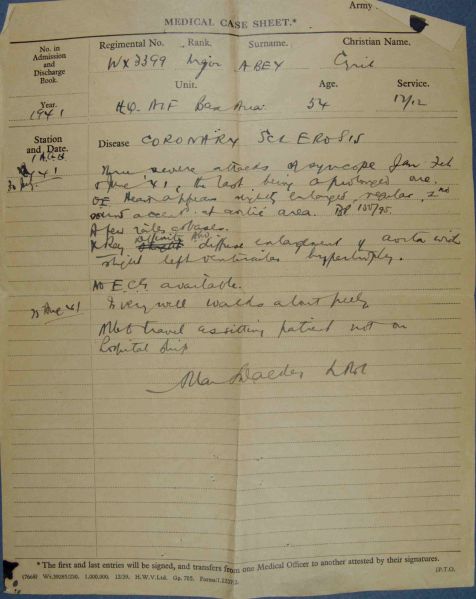 Army
MEDICAL CASE SHEET.*
No. in Admission and Discharge Book.
Regimental No. Rank. Surname. Christian Name.
WX 3399 Major ABEY Cyril
Unit. Age. Service.
HQ. AIF Base Area 54 12/12
Year.
1941
Station and Date.
Disease CORONARY SCLEROSIS
Three severe attacks of syncope Jan Feb
& June 41, the last being a prolonged one.
OE Heart appears slightly enlarged, regular, 2nd
sound accent. at aortic area. BP
A few rales at bases.
X Ray definite diffuse enlargement of aorta with
slight left ventricular hypertrophy.
No ECG available.
Very well walks about freely
Must travel as sitting patient not on
hospital ship
*The first and last entries will be signed, and transfers from one Medical Officer to another attested by their signatures.
[P.T.O.
1,000,000. 12/39. H.W.V.Ltd. Gp. 705.